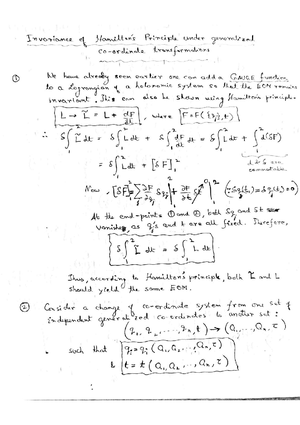 Invariance of Hamilton's Principle under generalised
co-ordinate transformations
① We have already seen earlier one can add a GAUGE function
to a Lagrangian of a holonomic system so that the EOM remains
invariant. This can also be shown using Hamilton's principle:
L → L̃ = L + dF/dt, where F = F({q_j}, t)
∴ δ∫₁² L̃ dt = δ∫₁² L dt + δ∫₁² dF/dt dt = δ∫₁² L dt + ∫₁² d(δF)
d & δ are commutable.
= δ∫₁² L dt + [δF]₁²
Now, [δF]₁² = Σ ∂F/∂q_j δq_j |₁² + ∂F/∂t δt |₁² = 0 (∵ δq_j(t₁) = δq_j(t₂) = 0)
At the end-points ① and ②, both δq_j and δt
vanish, as q_j's and t are all fixed. Therefore,
δ∫₁² L̃ dt = δ∫₁² L dt
Thus, according to Hamilton's principle, both L̃ and L
should yield the same EOM.
② Consider a change of co-ordinate system from one set of
independent generalized co-ordinates to another set:
(q₁, q₂, ..., qₙ, t) → (Q₁, ..., Qₙ, τ)
such that q_j = q_j (Q₁, Q₂, ..., Qₙ, τ)
& t = t (Q₁, Q₂, ..., Qₙ, τ)